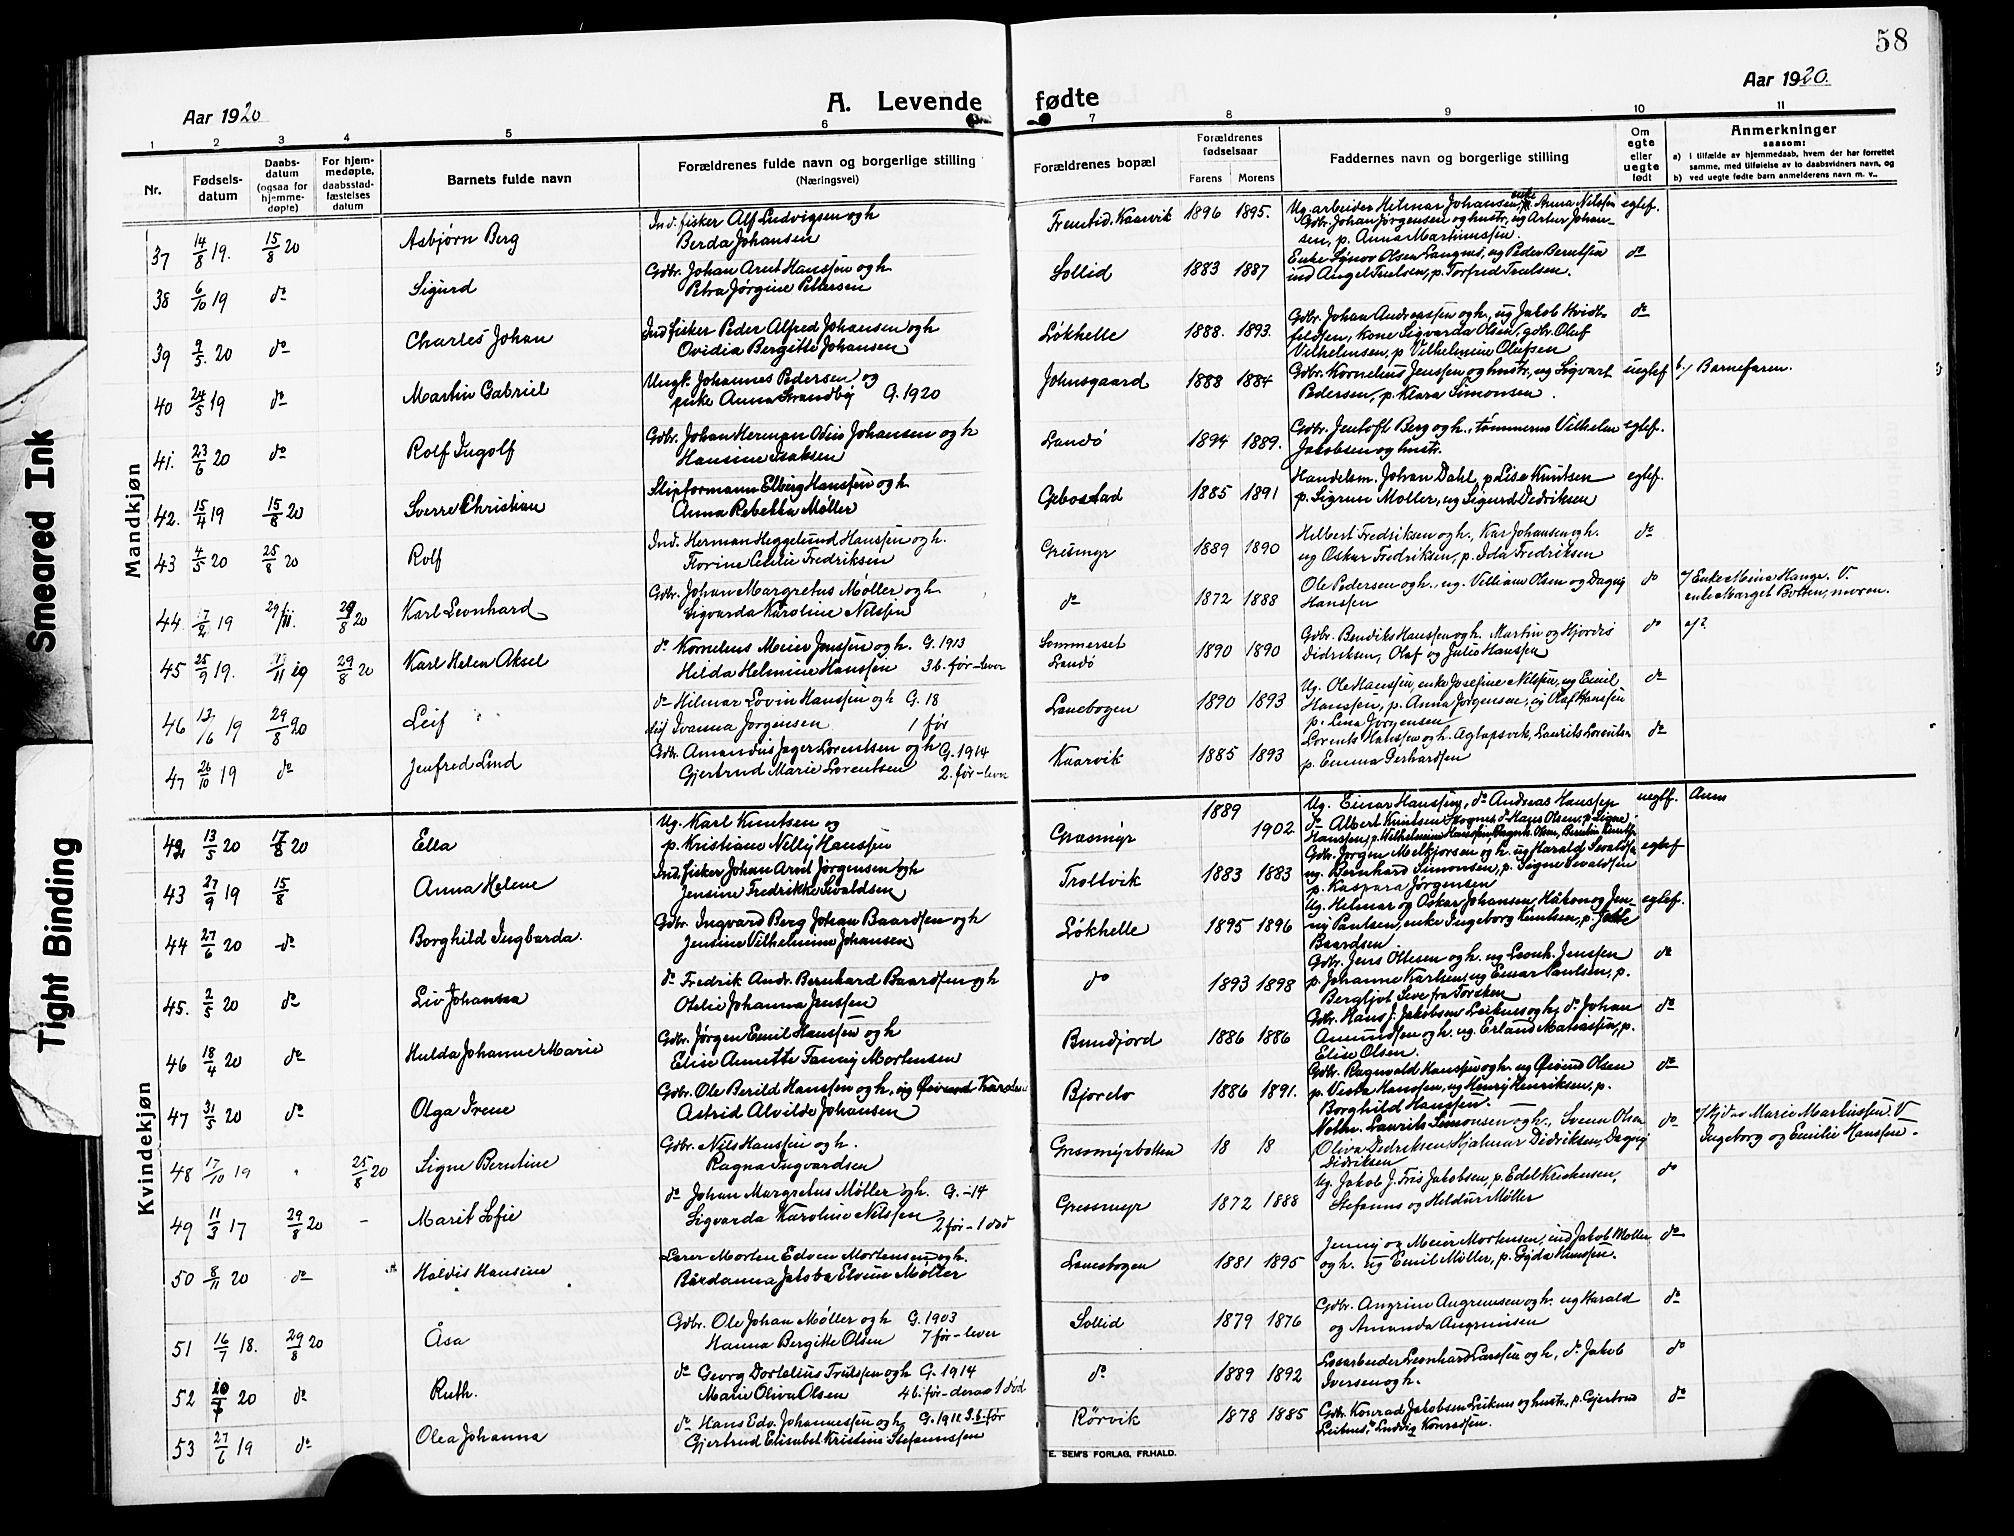 58
Aar 1920
Aar 1920.
A. Levende fødte
1 2 3 4 5 6 7 8 9 10 11
Nr.
Fødsels-
datum
Daabs-
datum
(ogsaa for
hjemme-
døpte)
For hjem-
medøpte,
daabsstad-
fæstelses
datum
Barnets fulde navn
Forældrenes fulde navn og borgerlige stilling
(Næringsvei)
Forældrenes bopæl
Forældrenes
fødselsaar
Farens Morens
Faddernes navn og borgerlige stilling
Om
egte
eller
uegte
født
Anmerkninger
saasom:
a) i tilfælde av hjemmedaab, hvem der har forrettet
samme, med tilføielse av to daabsvidners navn, og
b) ved uegte fødte barn anmelderens navn m. v..
Smeared Ink
Tight Binding
Mandkjøn
37 14/8 19. 15/8 20 Asbjørn Berg
Ind. fisker Alf Ludvigsen og h
Berda Johansen
Kaarvik 1896 1895.
Ug. arbeider Hilmar Johansen, enke Anna Nilssen
Gdbr. Johan Jørgensen og hustr., ug Artur Johan-
sen, p. Anna Martinussen.
egtef.
38 6/10 19 do Sigurd
Gdbr. Johan Arnt Hanssen og h
Petra Jørgine Pettersen
Sollid 1883 1887
ug Peder Berntsen
do
39 9/5 20 do Charles Johan
Ind. fisker Peder Alfred Johansen og h
Ovidia Bergitte Johansen
Løkhelle 1888. 1893.
Gdbr. Johan Andreassen og h., ug Jakob Hvidt-
feldsen, kone Sigvarda Olsen, gdbr. Oluf
Vilhelmsen, p Vilhelmine Olufsen
do
40 24/5 19 do Martin Gabriel
Ungk. Johannes Pedersen og
pike Anna Strandby G. 1920
Johnsgaard 1888 1884
Gdbr. Kornelius Jenssen og hustr., ug Sigvart
Pedersen, p. Klara Simonsen.
uegtef b./ Barnefaren.
41. 23/6 20 do Rolf Ingolf
Gdbr. Johan Herman Odin Johansen og h
Hansine Isaksen
Landø 1894 1889.
Gdbr. Jentoft Berg og h., tømmerm Vilhelm
Jakobsen og hustr.
egtef.
42. 15/4 19 15/8 20 Sverre Christian
Stipformann Elberg Hanssen og h
Anna Rebekka Møller
Gibostad 1885 1891
Handelsm. Johan Dahl, p Lise Knutsen
p. Sigrun Møller, ug Sigurd Didriksen
egtef.
43 4/5 20 25/8 20 Rolf
Ind. Herman Heggelund Hanssen og h.
Florine Cecilie Fredriksen
Grismyr 1889 1890
Helbert Fredriksen og h., Kar Johansen og h.
ug Oskar Fredriksen, p. Ida Fredriksen
do
44 7/2 19 29/8 20 Karl Leonhard
Gdbr. Johan Margretus Møller og h
Sigvarda Karoline Nilssen
do 1872 1888
Ole Pedersen og h., ug. Villiam Olsen og Dagny
Hanssen
do
45 25/9 19. 29/8 20 Karl Helen Aksel
do Kornelius Meier Jenssen og h. G. 1913
Hilda Helmine Hanssen 3 b. før - lever
Sommerset
Landø
1890 1890
Gdbr. Bendiks Hanssen og h. Martin og Hjordis
Didriksen, Olaf og Julie Hanssen
do a/ ?
46 12/6 19 29/8 20 Leif
do Hilmar Lovin Hanssen og h G. 18
Ivanna Jørgensen 1 før
Lanebogen 1890 1893
Ug. Ole Hanssen, enke Josefine Nilssen, ug Emil
Hanssen, p. Anna Jørgensen, ug Olaf Hanssen
p. Lina Jørgensen
do
47 26/10 19 do Jenfred Lind
Gdbr. Amandus Jeger Lorentsen og h G. 1914
Gjertrud Marie Lorentsen 2. før - lever
Kaarvik 1885 1893
Lorents Hanssen og h. Aglapsvik, Laurits Lorentsen
p. Emma Gerhardsen
do
Kvindekjøn
42 13/5 20 17/8 20 Ella
Ug. Karl Knutsen og
p. Kristiane Nelly Hanssen
Græsmyr 1889 1902
Ug. Einar Hanssen, do Andreas Hanssen
do Albert Knutsen Hans Olsen, p. Signe
Hanssen, p. Wilhelmine Hanssen
uegtef. Anm
43 27/9 19 15/8 Anna Helene
Ind. fisker Johan Arnt Jørgensen og h
Jensine Fredrikke Sivaldsen
Trollvik 1883 1883
Gdbr. Jørgen Melkjorsen og h. ug Harald Sivaldsen
ug. Bernhard Simonsen, p. Signe Sivaldsen
p. Kaspara Jørgensen
egtef
44 27/6 20 do Borghild Ingbarda.
Gdbr. Ingvard Berg Johan Baardsen og h
Jensine Vilhelmine Johansen
Løkhelle 1895 1896
Ug. Helmar og Oskar Johansen, Håkon og Jen-
ny Paulsen, enke Ingeborg Knutsen, p.
Baardsen
egtef.
45. 2/5 20 do Liv Johanna
do Fredrik Andr. Bernhard Baardsen og h
Otelie Johanna Jenssen
do 1893 1898
Gdbr. Jens Ottesen og h. ug Leonh. Jenssen
p. Johanne Karlsen, ug Einar Paulsen, p.
Bergljot Sive fra Torsken
do
46 18/4 20 do Hulda Johanne Marie
Gdbr. Jørgen Emil Hanssen og h
Elise Annette Fanny Mortensen
Bunfjord 1886 1886
Gdbr. Hans J. Jakobsen Leiknes og h, do Johan
Amundsen og h. ug. Erland Matiassen, p.
Elise Olsen.
do
47 31/5 20 do Olga Irene
Gdbr. Ole Berild Hanssen og h.
Astrid Alvilde Johansen
Bjorelv 1886 1891.
Gdbr. Ragnvald Hanssen og h. ug Øivind Olsen
p. Vesta Hanssen, ug Henry Henriksen, p.
Borghild Hanssen.
do
48 17/10 19 " 25/8 20 Signe Berntine
Gdbr. Nils Hanssen og h.
Ragna Ingvardsen
Græsmyrbotten 18 18
Laurits Simonsen og h., Svenn Olsen
Oliva Didriksen, Hjalmar Didriksen, Dagny
Didriksen
do a/ Marie Martinssen. V
Ingeborg og Emilie Hanssen.
49 11/3 17 29/8 20 - Marit Sofie
do Johan Margretus Møller og h. G. -14
Sigvarda Karoline Nilssen 2 før - 1 død
Gressmyr 1872 1888
Ug. Jakob J. Friis Jakobsen, p. Edel Kreknesen,
Stefanus og Heldur Møller
do
50 8/11 20 do Haldis Hansine
Lærer Morten Edvin Mortensen og h.
Bårdanna Jakoba Elvine Møller
Lanebogen 1881 1895
Jenny og Meier Mortensen, ind Jakob Møller
og h. ug Emil Møller, p. Gyda Hanssen.
do
51 16/7 18. 29/8 20 Åsa
Gdbr. Ole Johan Møller og h G. 1903
Hanna Bergitte Olsen 7 før - lever
Sollid 1879 1876
Gdbr. Angrim Angrimsen og h. ug Harald
og Amanda Angrimsen
do
52 20 do Ruth.
do Georg Dortelius Trulssen og h G. 1914
Marie Oliva Olsen 4 b. før - derav 1 død
do 1889 1892
Løsarbeider Leonhard Larssen og h, do Jakob
Iversen og h.
do
53 27/6 19 do Olea Johanna
do Hans Edv. Johannessen og h G. 1911 3 b. før
Gjertrud Elisabet Kristine Stefanussen
Rørvik 1878 1885
Gdbr. Konrad Jakobsen Leiknes og hustr., p. Gjertrud
Leiknes, Ludvig Konradsen.
do
E. SEM'S FORLAG, FR.HALD.